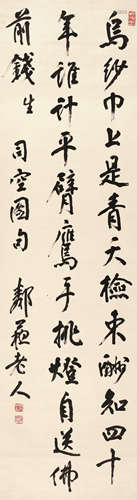 烏紗巾上是青天檢束酬知四十
年誰計平臂鷹手挑燈自送佛
前錢 生 司空圖句 鄰蘇老人